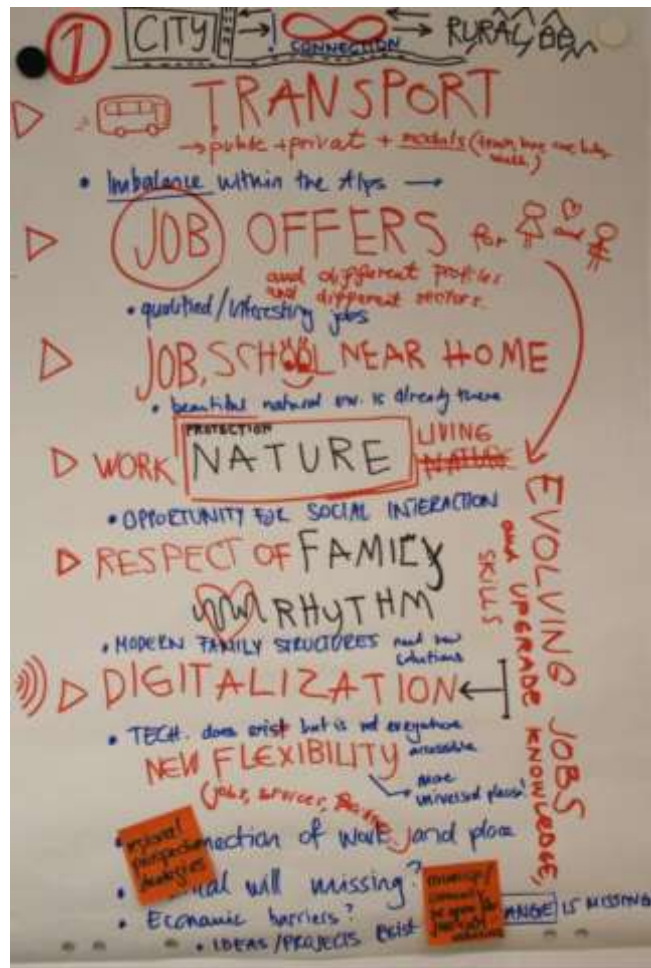 1 CITY ! CONNECTION RURAL
TRANSPORT
→ public + private + modals (train, bus, car, bike, walk)
• Imbalance within the Alps →
JOB OFFERS for
and different profiles
and different sectors.
• qualified/interesting jobs
JOB, SCHOOL NEAR HOME
• beautiful natural env. is already there
PROTECTION
WORK NATURE LIVING
NATURE
• OPPORTUNITY FOR SOCIAL INTERACTION
RESPECT OF FAMILY
RHYTHM
• MODERN FAMILY STRUCTURES need new
solutions
DIGITALIZATION ←
• TECH. does exist but is not everywhere
accessible
NEW FLEXIBILITY
→ more
universal places!
(jobs, services,
EVOLVING JOBS
and UPGRADE KNOWLEDGE,
SKILLS
nection of work and place
will missing?
• Economic barriers?
• IDEAS/PROJECTS exist
ANGE IS MISSING